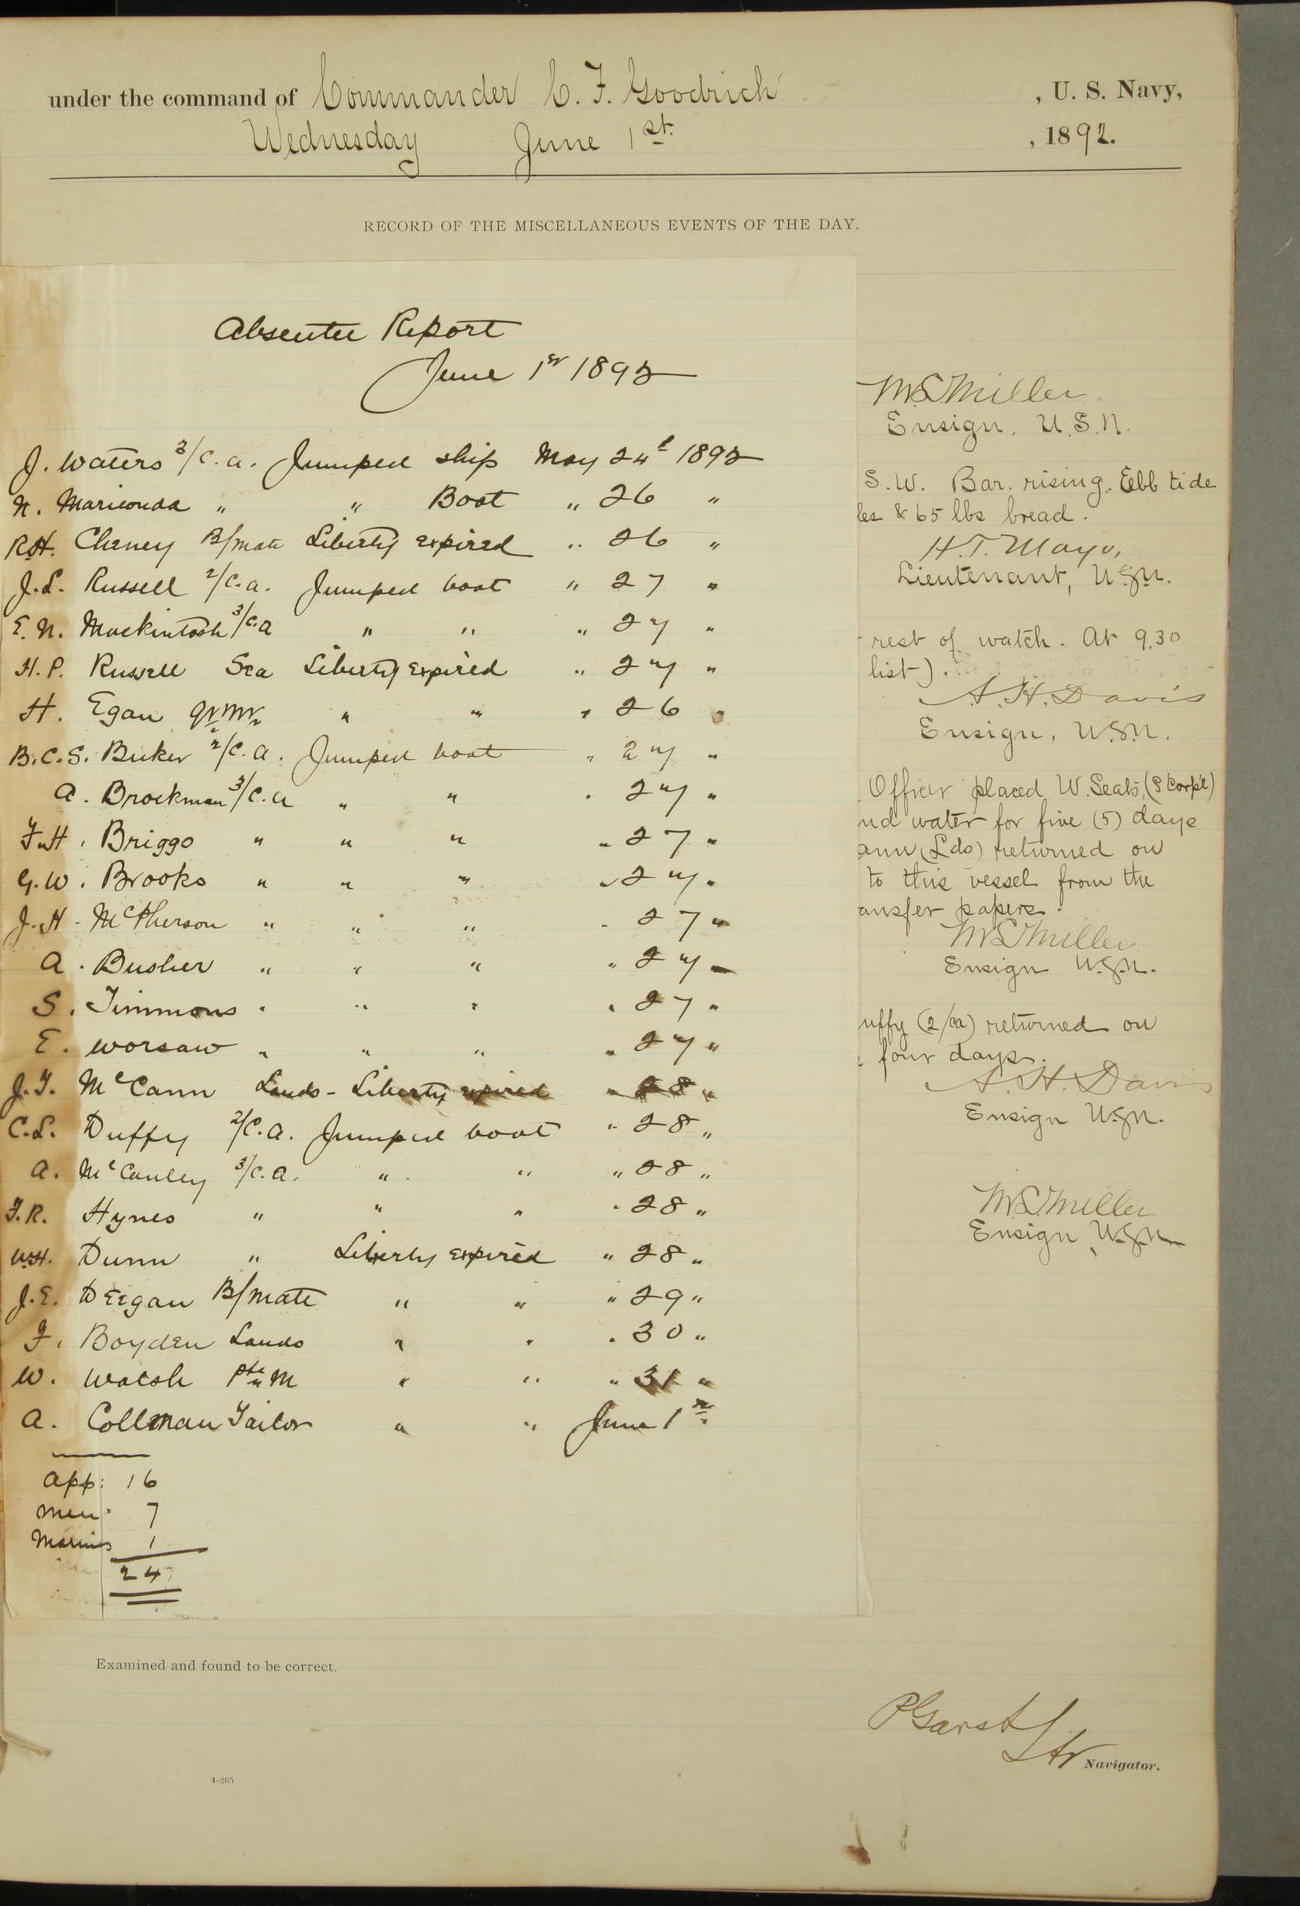 under the command of Commander C. F. Goodrich , U. S. Navy,
Wednesday June 1st. , 1892.
RECORD OF THE MISCELLANEOUS EVENTS OF THE DAY.
Absentee Report
June 1st 1892
J. Waters 3/c. a. Jumped ship May 24th 1892
N. Mariconda " " Boat " 26 "
R.H. Cheney B/mate Liberty expired " 26 "
J.L. Russell 2/c. a. Jumped boat " 27 "
E. N. Mackintosh 3/c. a " " " 27 "
H. P. Russell Sea Liberty expired " 27 "
H. Egan Qr Mr " " " 26 "
B. C. S. Buker 2/c. a. Jumped boat " 27 "
A. Brockman 3/c. a " " " 27 "
F. H. Briggs " " " " 27 "
G. W. Brooks " " " " 27 "
J. H. McPherson " " " " 27 "
A. Busher " " " " 27 "
S. Timmons " " " " 27 "
E. Worsaw " " " " 27 "
J. F. McCann Lands - Liberty expired " 28 "
C. L. Duffy 2/c. a. Jumped boat " 28 "
A. McCauley 3/c. a. " " " 28 "
F. R. Hynes " " " " 28 "
W.H. Dunn " Liberty expired " 28 "
J. E. Deegan B/mate " " " 29 "
F. Boyden Lands " " " 30 "
W. Walsh Pte M " " " 31 "
A. Collman Tailor " " June 1st "
App: 16
Men 7
Marines 1
24
M.S. Miller
Ensign, U.S.N.
S.W. Bar. rising. Ebb tide
les & 65 lbs bread.
H.T. Mayo,
Lieutenant, U.S.N.
rest of watch. At 9.30
list).
A. H. Davis
Ensign, U.S.N.
Officer placed W. Seats, (S Corp'l)
nd water for five (5) days
ann (Lds) returned on
to this vessel from the
ansfer papers.
M.S. Miller
Ensign U.S.N.
uffy (2/ca) returned on
four days.
A. H. Davis
Ensign U.S.N.
M.S. Miller
Ensign, U.S.N.
Examined and found to be correct.
P Garst
Lt Navigator.
4-265